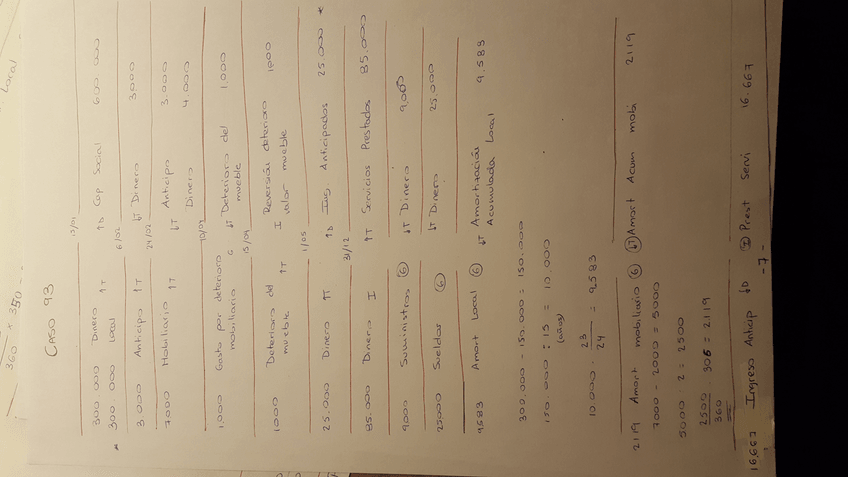 360 * 350
Local
CASO 93
10/01
300.000 Dinero ↑T ↑D Cap Social 600.000
* 300.000 Local
6/02
3.000 Anticipo ↑T ↓T Dinero 3000
24/02
7000 Mobiliario ↑T ↑T Anticipo 3.000
Dinero 4.000
10/04
1.000 Gasto por deterioro mobiliario G ↓T Deterioro del mueble 1.000
15/09
1000 Deterioro del mueble ↑T I Reversión deterioro valor mueble 1000
1/05
25.000 Dinero ↑T ↑D Ing Anticipados 25.000 *
31/12
85.000 Dinero I ↑T Servicios Prestados 85.000
9000 Suministros G ↓T Dinero 9.000
25000 Sueldos G ↓T Dinero 25.000
9583 Amort Local G ↓T Amortización Acumulada Local 9.583
300.000 - 150.000 = 150.000
150.000 : 15 = 10.000
(años)
10.000 · 23/24 = 9583
2119 Amort mobiliario G ↓T Amort Acum mobi 2119
7000 - 2000 = 5000
5000 · 2 = 2500
2500/360 · 305 = 2119
16.667 Ingreso Anticip ↓D I Prest Servi 16.667
-7-